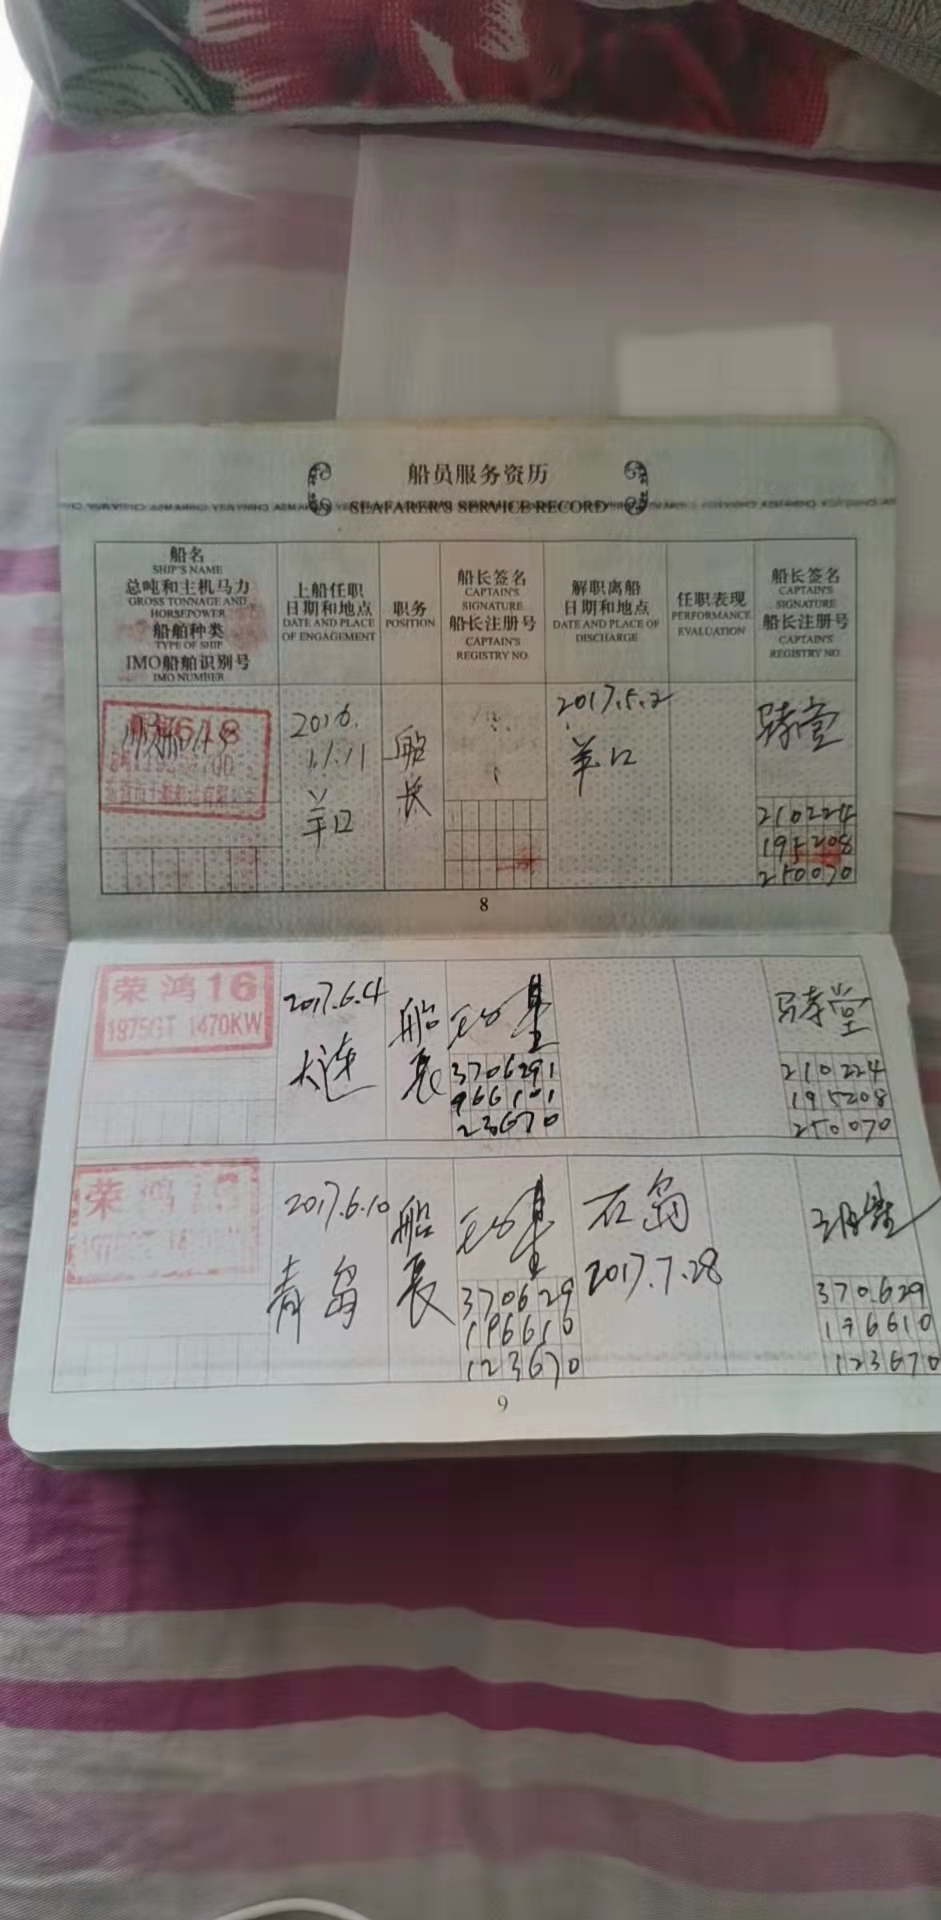 船员服务资历
SEAFARER'S SERVICE RECORD
船名
SHIP'S NAME
总吨和主机马力
GROSS TONNAGE AND
HORSEPOWER
船舶种类
TYPE OF SHIP
IMO船舶识别号
IMO NUMBER
上船任职
日期和地点
DATE AND PLACE
OF ENGAGEMENT
职务
POSITION
船长签名
CAPTAIN'S
SIGNATURE
船长注册号
CAPTAIN'S
REGISTRY NO.
解职离船
日期和地点
DATE AND PLACE OF
DISCHARGE
任职表现
PERFORMANCE
EVALUATION
船长签名
CAPTAIN'S
SIGNATURE
船长注册号
CAPTAIN'S
REGISTRY NO.
2016.
11.11
羊口
船
长
2017.5.2
羊口
210224
195208
250070
8
荣鸿16
1975GT 1470KW
2017.6.4
大连
船
长
3706291
966101
23670
210224
195208
250070
荣鸿
2017.6.10
青岛
船
长
370629
196610
123670
石岛
2017.7.28
370629
196610
123670
9